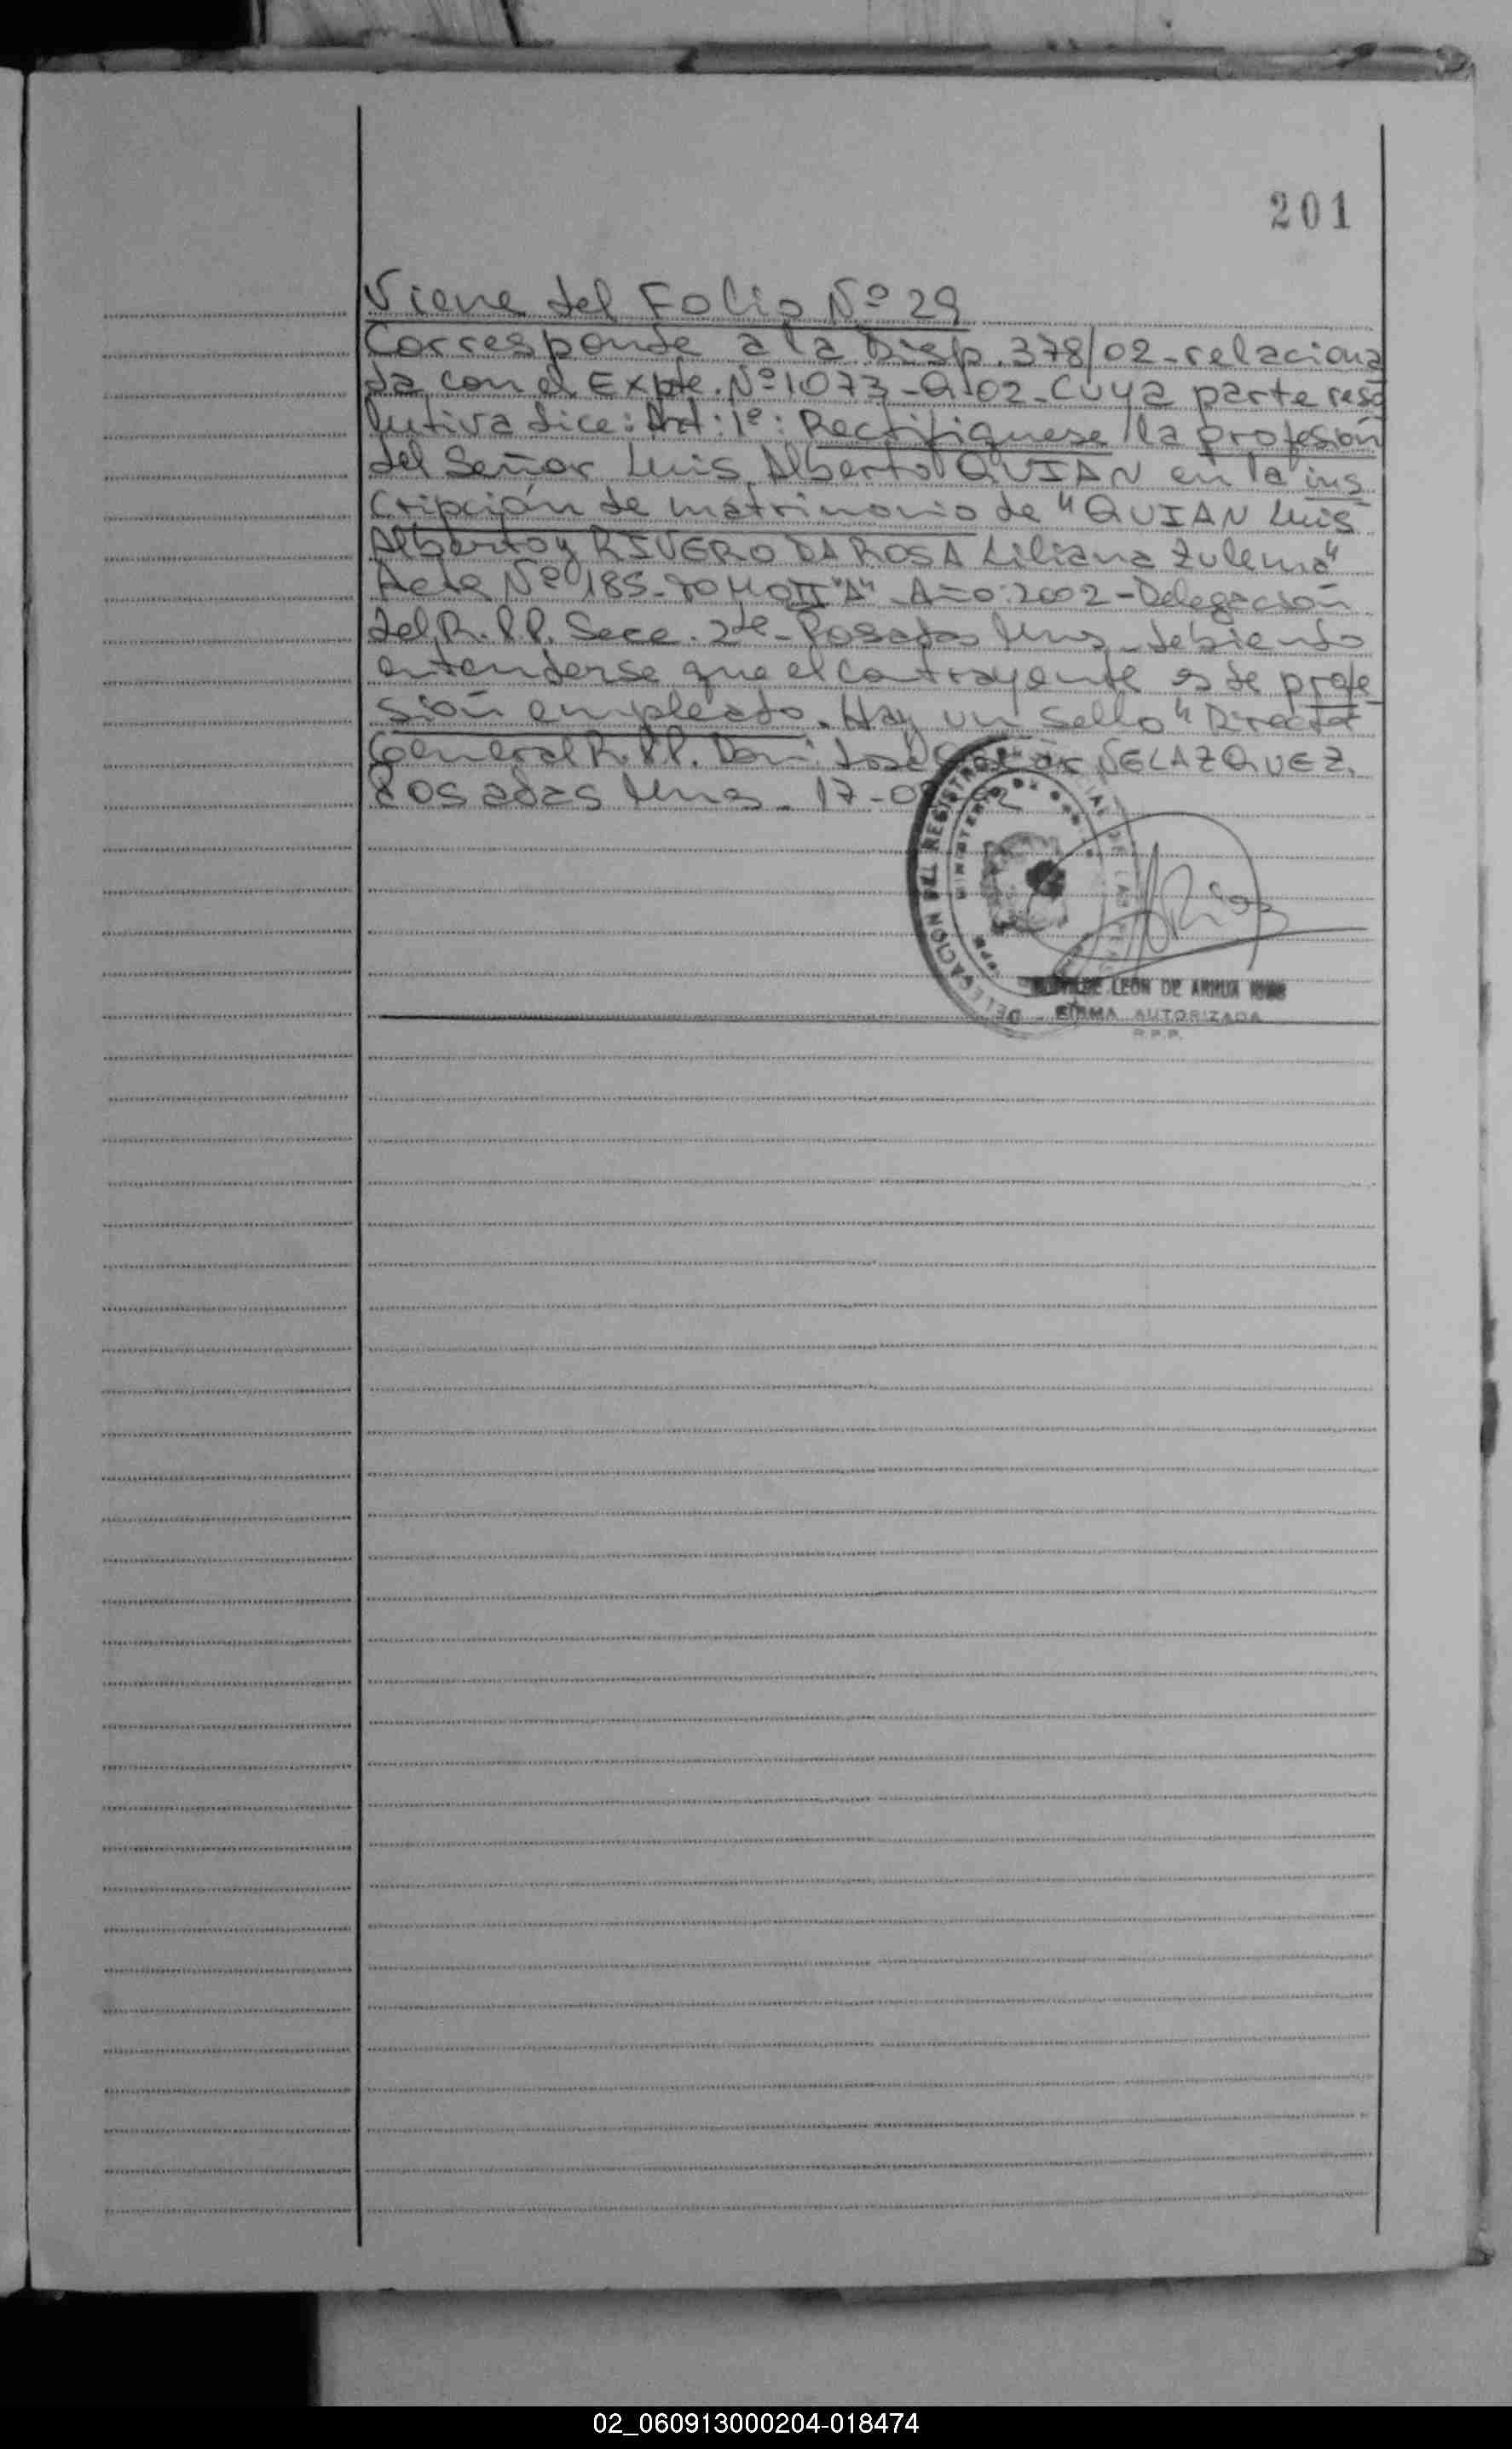 201
Viene del Folio Nº 29
Corresponde a la Disp. 378/02-relaciona
da con el Expte. Nº 1073-Q-02-Cuya parte reso
lutiva dice: Art: 1º: Rectifiquese la profesión
del Señor Luis Alberto QUIAN en la ins
cripción de matrimonio de "QUIAN Luis
Alberto y RIVERO DA ROSA Liliana Zulema"
Acta Nº 185-TOMO II "A"-Año:2002-Delegación
del R.P.P. Secc. 2da-Posadas Mnes-debiendo
entenderse que el contrayente es de profe
sión empleado. Hay un Sello "Director
General R.P.P. Don: José VELAZQUEZ.
Posadas Mnes. 17-0
DELEGACION DEL REGISTRO
MINISTERIO DE
LEON DE ARRUA
FIRMA AUTORIZADA
R.P.P.
02_060913000204-018474